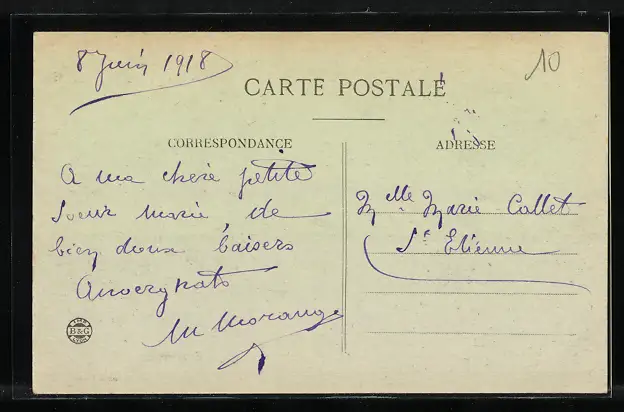 8 Juin 1918
10
CARTE POSTALE
CORRESPONDANCE
A ma chère petite
Soeur Marie, de
bien doux baisers
Auvergnats
M Morange
IMP.
B&G
LYON
ADRESSE
Melle Marie Collet
St Etienne